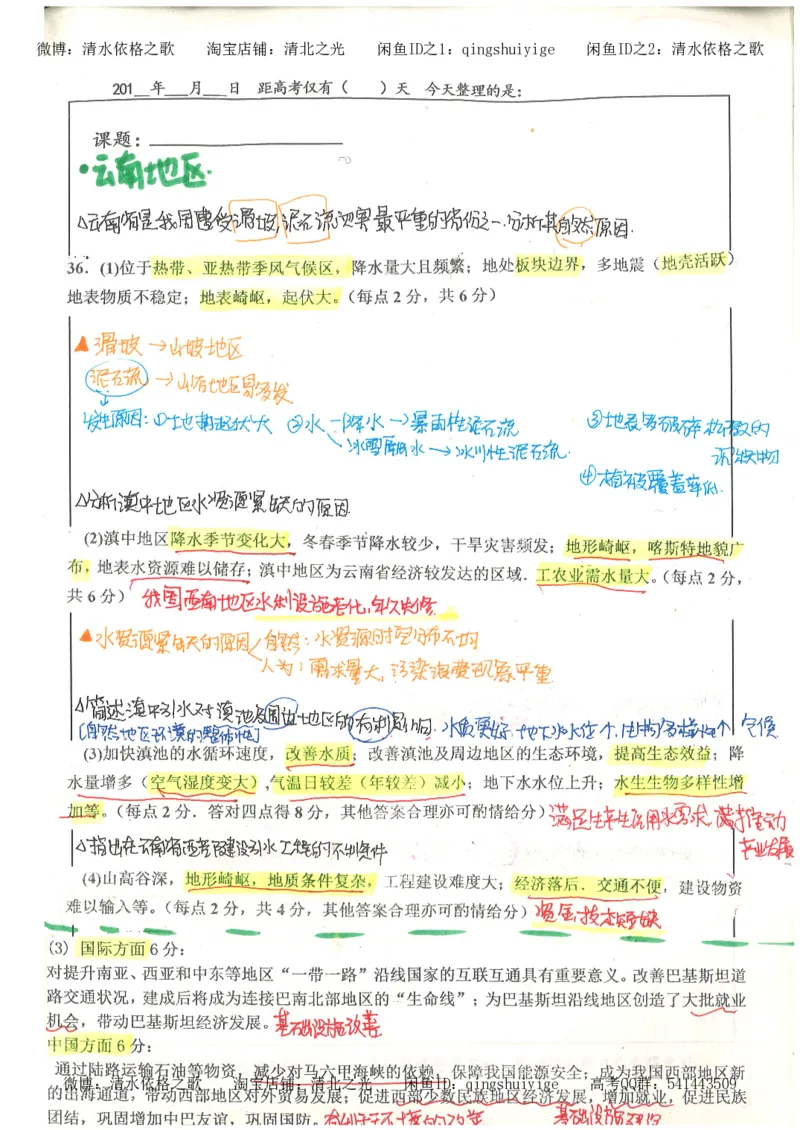 微博：清水依格之歌 淘宝店铺：清北之光 闲鱼ID之1：qingshuiyige 闲鱼ID之2：清水依格之歌
201__年___月___日 距高考仅有（ ）天 今天整理的是：
课题：
·云南地区·
△云南省是我国遭受滑坡,泥石流灾害最严重的省份之一.分析其自然原因.
36．(1)位于热带、亚热带季风气候区，降水量大且频繁；地处板块边界，多地震（地壳活跃）
地表物质不稳定；地表崎岖，起伏大。（每点 2 分，共 6 分）
▲滑坡→山坡地区
泥石流→山谷地区易多发
发生原因：①地势起伏大 ②水—降水→暴雨性泥石流 ③地表多破碎松散的
沉积物
冰雪融水→冰川性泥石流.
④植被覆盖率低.
△分析滇中地区水资源紧缺的原因
(2)滇中地区降水季节变化大，冬春季节降水较少，干旱灾害频发；地形崎岖，喀斯特地貌广
布，地表水资源难以储存；滇中地区为云南省经济较发达的区域．工农业需水量大。（每点 2 分，
共 6 分） 我国西南地区水利设施老化,年久失修.
▲水资源紧缺的原因 自然：水资源时空分布不均
人为：需求量大,污染浪费现象严重.
△简述滇中引水对滇池及周边地区的有利影响.
[自然地区环境的整体性] 水质更好 地下水水位个,生物多样性个 气候
(3)加快滇池的水循环速度，改善水质；改善滇池及周边地区的生态环境，提高生态效益；降
水量增多（空气湿度变大）,气温日较差（年较差）减小；地下水水位上升；水生生物多样性增
加等。（每点 2 分．答对四点得 8 分，其他答案合理亦可酌情给分） 满足生产生活用水需求,
推动
产业发展
△指出在云南省西北部建设引水工程的不利条件
(4)山高谷深，地形崎岖，地质条件复杂，工程建设难度大；经济落后．交通不便，建设物资
难以输入等。（每点 2 分，共 4 分，其他答案合理亦可酌情给分） 资金,技术短缺
(3) 国际方面 6 分：
对提升南亚、西亚和中东等地区“一带一路”沿线国家的互联互通具有重要意义。改善巴基斯坦道
路交通状况，建成后将成为连接巴南北部地区的“生命线”；为巴基斯坦沿线地区创造了大批就业
机会，带动巴基斯坦经济发展。 基础设施改善
中国方面 6 分：
通过陆路运输石油等物资，减少对马六甲海峡的依赖，保障我国能源安全；成为我国西部地区新
微博：清水依格之歌 淘宝店铺：清北之光 闲鱼ID：qingshuiyige 高考QQ群：541443509
的出海通道，带动西部地区对外贸易发展；促进西部少数民族地区经济发展，增加就业，促进民族
团结，巩固增加中巴友谊，巩固国防。